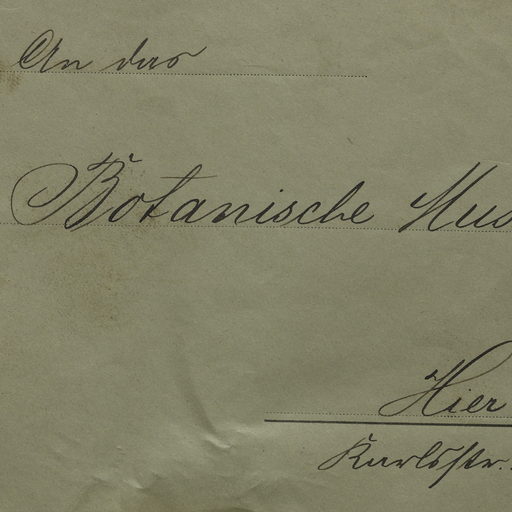 An das
Botanische Mus
Hier
Karlsstr.